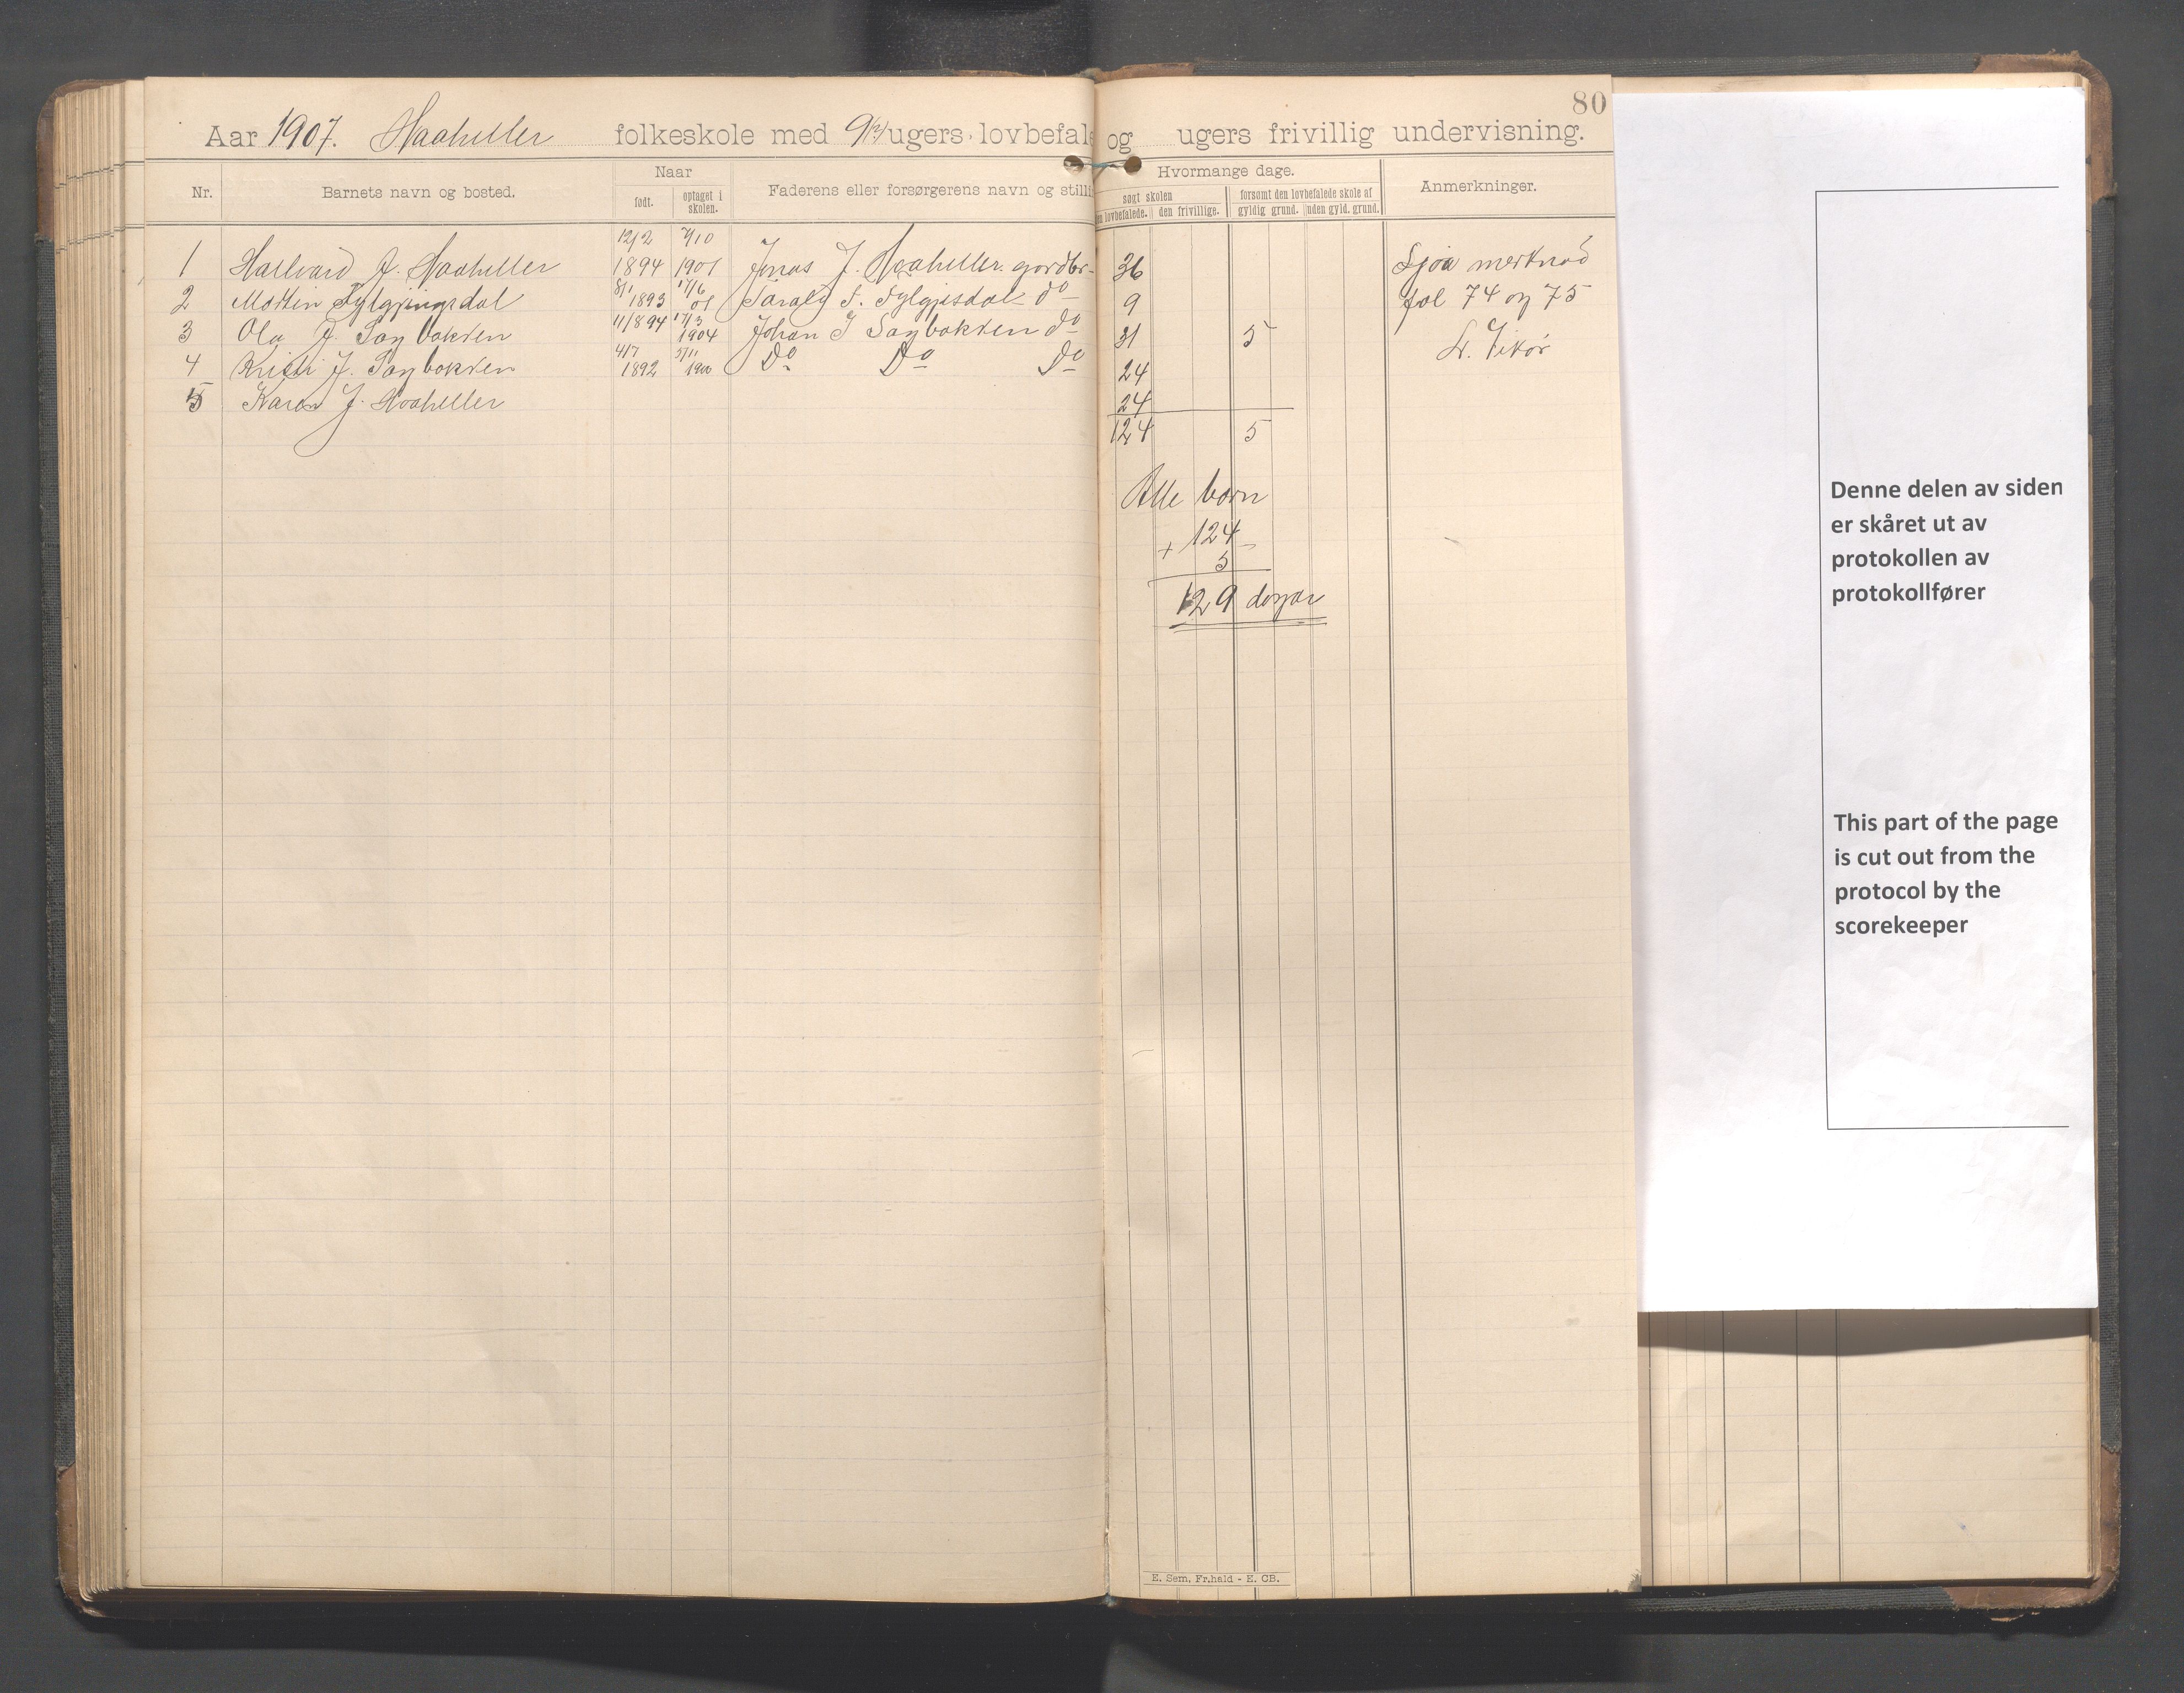 80
Aar 1907. Haaheller folkeskole med 9 ugers lovbefal og ugers frivillig undervisning.
Nr. Barnets navn og bosted. Naar Faderens eller forsørgerens navn og stilli Hvormange dage. Anmerkninger.
født. optaget i skolen. søgt skolen forsømt den lovbefalede skole af
en lovbefalede. den frivillige. gyldig grund. uden gyld. grund.
12/2 7/10
1 Hallvard J. Haaheller 1894 1901 Jonas J. Haaheller gardbr- 36 Sjaa merknad
8/1 17/6
2 Mortin Fylgjingsdal 1893 01 Taraly S. Fylgjesdal do 9 fol 74 og 75
11/894 17/3
3 Ola J. Sagbakken 1904 Johan J Sagbakken do 31 5 L. Vikør
4/7 5/11
4 Kristi J. Sagbakken 1892 1900 Do Do Do 24
5 Karen J. Haaheller 24
124 5
Alle børn
124
+ 5
129 dagar
E. Sem, Fr.hald - E. CB.
Denne delen av siden
er skåret ut av
protokollen av
protokollfører
This part of the page
is cut out from the
protocol by the
scorekeeper